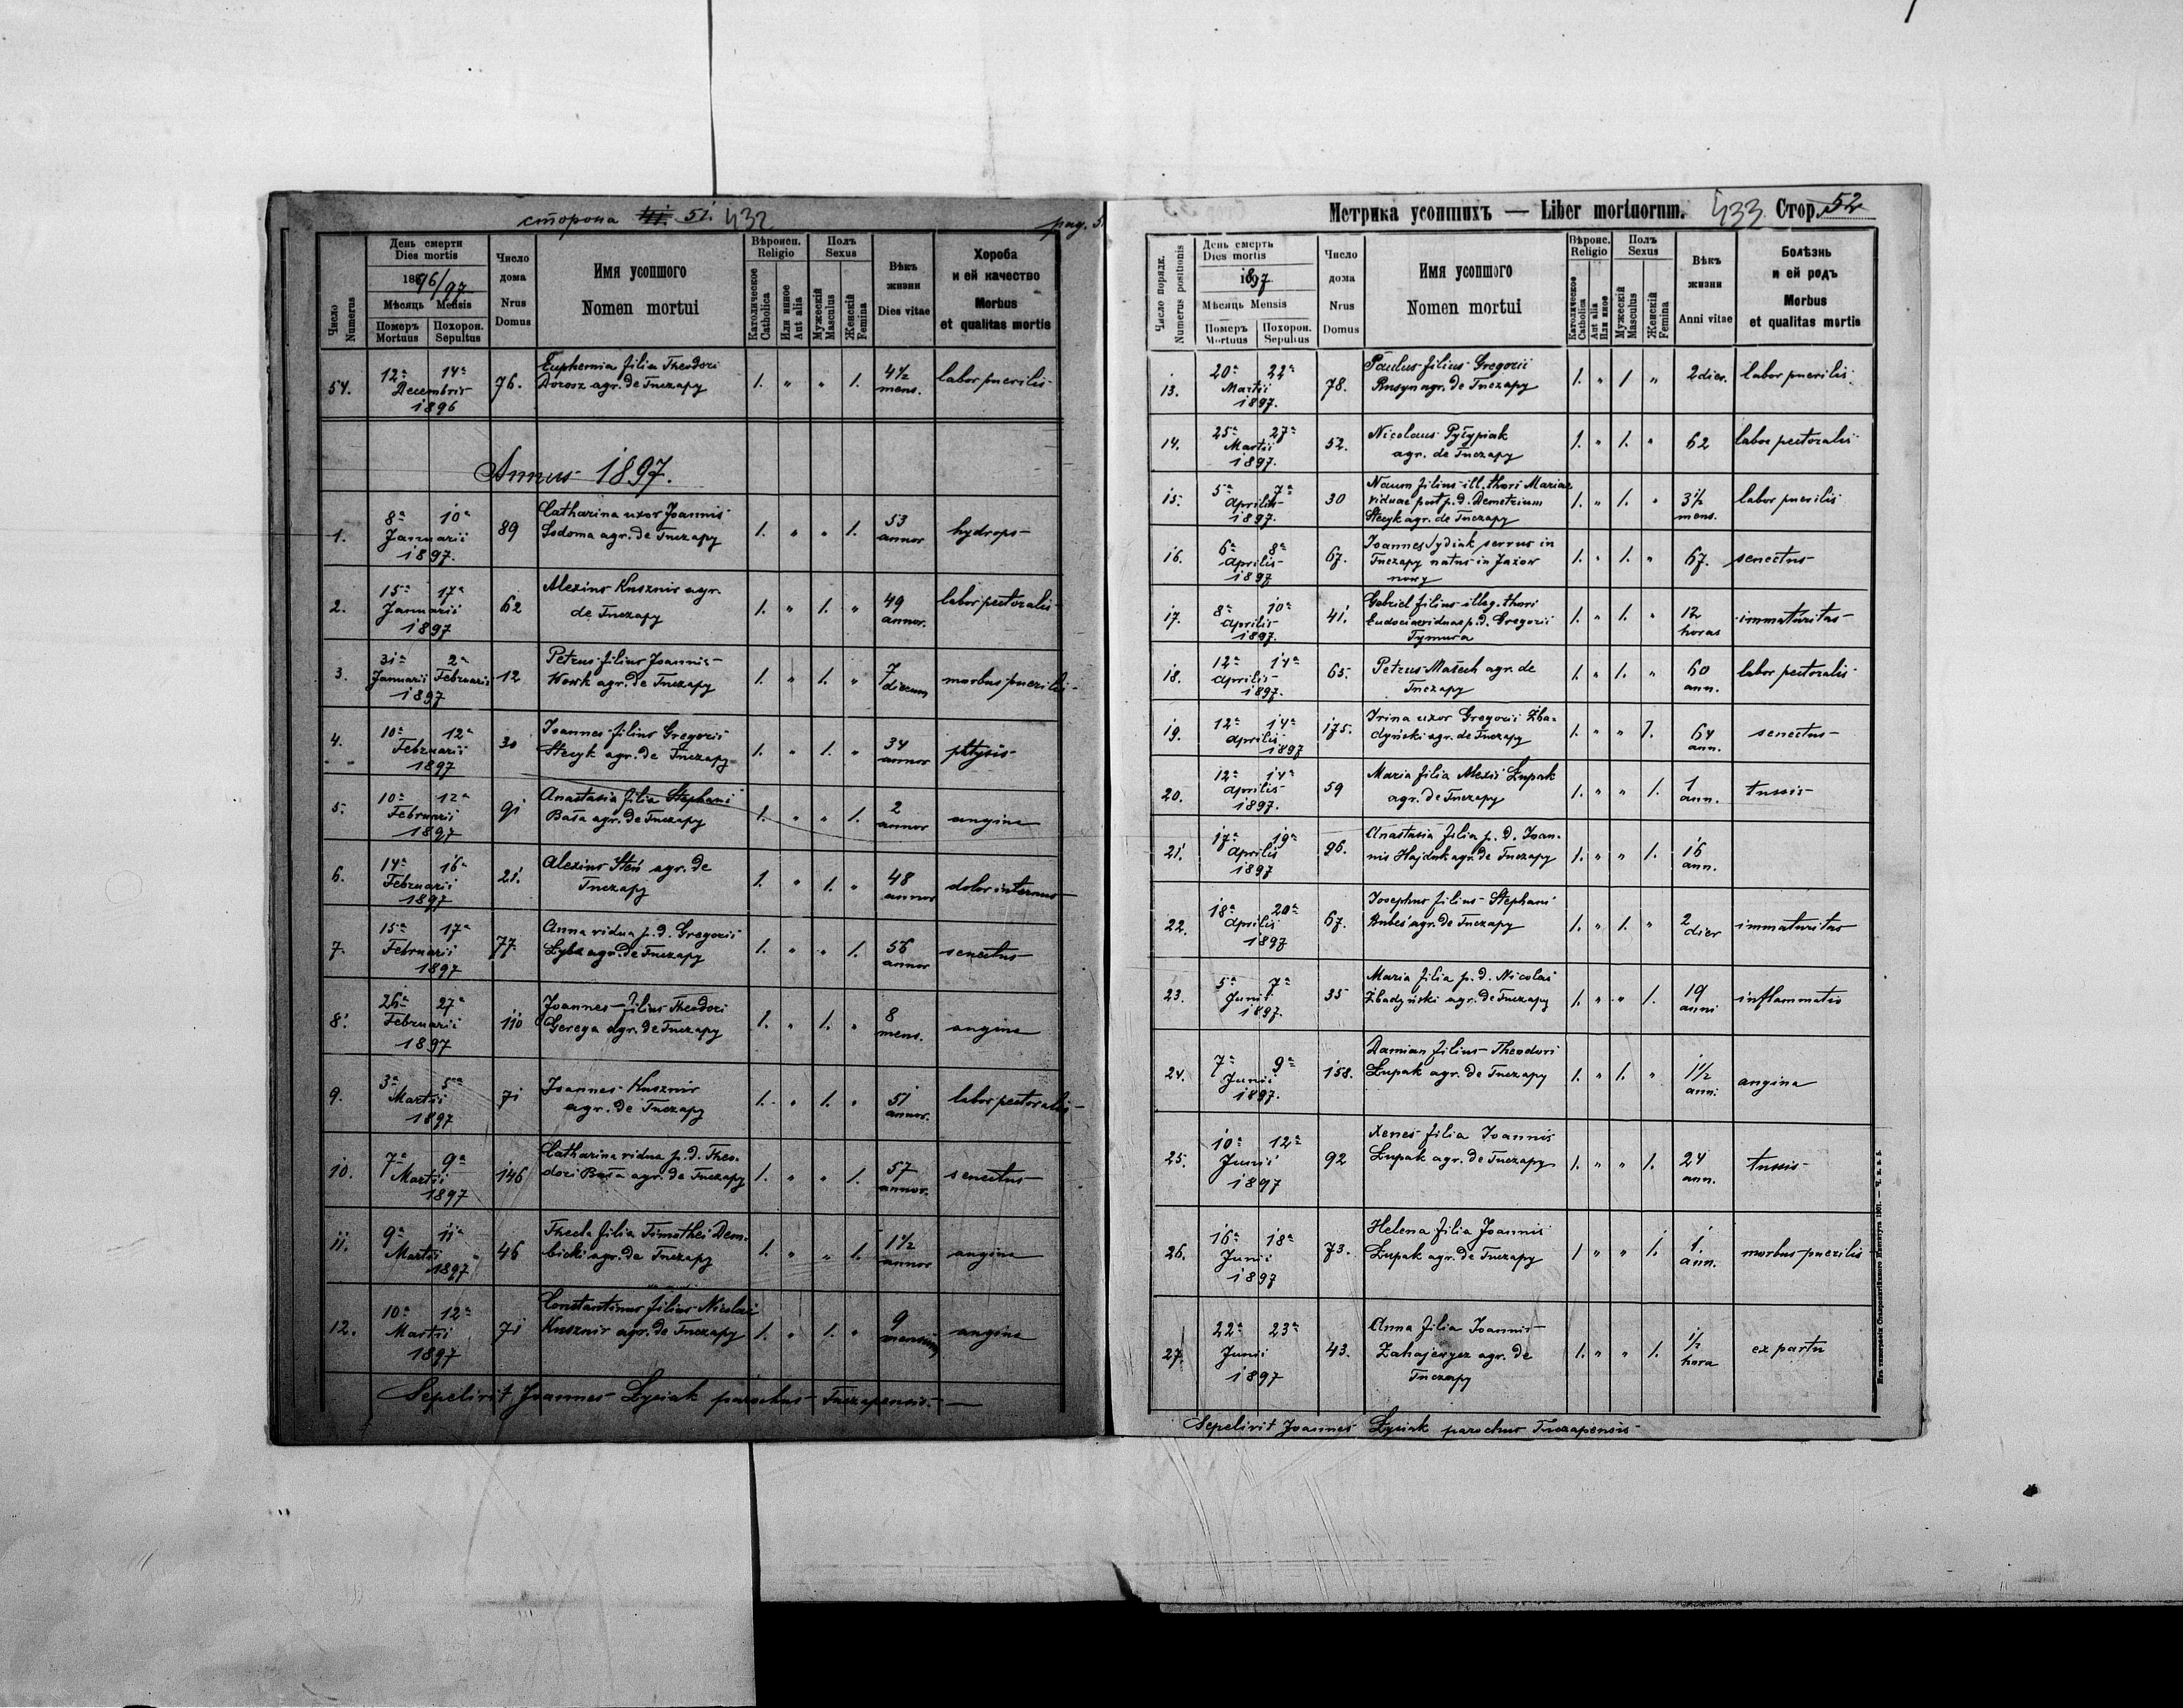 сторона 51. 432
pag. 5
Число
Numerus
День смерти
Dies mortis
1896/97
Мѣсяць Mensis
Померъ Похорон.
Mortuus Sepultus
Число
дома
Nrus
Domus
Имя усопшого
Nomen mortui
Вѣроисп.
Religio
Католическое
Catholica
Или инное
Aut alia
Полъ
Sexus
Мужескій
Masculus
Женскій
Femina
Вѣкъ
жизни
Dies vitae
Хороба
и ей качество
Morbus
et qualitas mortis
54. 12a 14a Decembris 1896 76. Euphemia filia Theodori
Dorosz agr. de Tuczapy 1. " " 1. 4½ mens. labor puerilis
Annus 1897.
1. 8a 10a Januarii 1897. 89 Catharina uxor Joannis
Sodoma agr. de Tuczapy 1. " " 1. 53 annor hydrops
2. 15a 17a Januarii 1897 62 Alexius Kusznir agr.
de Tuczapy 1. " 1. " 49 annor. labor pectoralis
3. 31a Januarii 2a Februarii 1897 12 Petrus filius Joannis
Wowk agr. de Tuczapy 1. " 1. " 7 dierum morbus puerilis
4. 10a 12a Februarii 1897 30 Joannes filius Gregorii
Stecyk agr. de Tuczapy 1. " 1. " 34 annor phtysis
5. 10a 12a Februarii 1897 91 Anastasia filia Stephani
Basa agr. de Tuczapy 1. " " 1. 2 annor angina
6. 14a 16a Februarii 1897 21. Alexius Steń agr. de
Tuczapy 1. " 1. " 48 annor dolor internus
7. 15a 17a Februarii 1897 77. Anna vidua p. d. Gregorii
Lyba agr. de Tuczapy 1. " " 1. 56 annor senectus
8. 26a 27a Februarii 1897 110 Joannes filius Theodori
Gerega agr. de Tuczapy 1. " 1. " 8 mens. angina
9. 3a 5a Martii 1897 71 Joannes Kusznir
agr. de Tuczapy 1. " 1. " 51 annor. labor pectoralis
10. 7a 9a Martii 1897 146 Catharina vidua p. d. Theo-
dori Basa agr. de Tuczapy 1. " " 1. 57 annor. senectus
11. 9a 11a Martii 1897 46 Thecla filia Timothei Dem-
bicki agr. de Tuczapy 1. " " 1. 1½ annor angina
12. 10a 12a Martii 1897 71 Constantinus filius Nicolai
Kusznir agr. de Tuczapy 1. " 1. " 9 mensium angina
Sepelivit Joannes Łysiak parochus Tuczapensis
Метрика усопшихъ — Liber mortuorum. 433 Стор. 52
Число порядк.
Numerus positionis
День смерть
Dies mortis
1897
Мѣсяць Mensis
Померъ Похорон.
Mortuus Sepultus
Число
дома
Nrus
Domus
Имя усопшого
Nomen mortui
Вѣроис.
Religio
Католическое
Catholica
Aut alia
Или иное
Полъ
Sexus
Мужескій
Masculus
Женскій
Femina
Вѣкъ
жизни
Anni vitae
Болѣзнь
и ей родъ
Morbus
et qualitas mortis
13. 20a 22a Martii 1897. 78. Paulus filius Gregorii
Rusyn agr. de Tuczapy 1. " 1 " 2 dier. labor puerilis.
14. 25a 27a Martii 1897. 52. Nicolaus Pyłypiak
agr. de Tuczapy 1. " 1. " 62 labor pectoralis
15. 5a 7a Aprilis 1897. 30 Naum filius ill. thori Mariae
viduae post p. d. Demetrium
Stecyk agr. de Tuczapy 1. " 1. " 3½ mens. labor puerilis
16. 6a 8a Aprilis 1897 67. Joannes Sydiak servus in
Tuczapy natus in Jazow
nowy 1. " 1. " 67. senectus
17. 8a 10a Aprilis 1897. 41. Gabriel filius illeg. thori
Eudociae viduae p. d. Gregorii
Tymura 1. " 1. " 12 horas immaturitas
18. 12a 14a Aprilis 1897. 65. Petrus Masech agr. de
Tuczapy 1. " 1. " 60 ann. labor pectoralis
19. 12a 14a Aprilis 1897 175. Irina uxor Gregorii Zba-
dyński agr. de Tuczapy 1. " " 1. 64 ann. senectus
20. 12a 14a Aprilis 1897. 59 Maria filia Alexii Łupak
agr. de Tuczapy 1. " " 1. 1 ann. tussis
21. 17a 19a Aprilis 1897 96. Anastasia filia p. d. Joan-
nis Hajduk agr. de Tuczapy 1. " " 1. 16 ann.
22. 18a 20a Aprilis 1897 67. Josephus filius Stephani
agr. de Tuczapy 1. " 1. " 2 dier immaturitas
23. 5a 7a Junii 1897. 35 Maria filia p. d. Nicolai
Zbadyński agr. de Tuczapy 1. " " 1. 19 anni inflammatio
24. 7a 9a Junii 1897. 158. Damian filius Theodori
Łupak agr. de Tuczapy 1. " 1. " 1½ ann. angina
25. 10a 12a Junii 1897 92 Xenes filia Joannis
Łupak agr. de Tuczapy 1. " " 1. 24 ann. tussis
26. 16a 18a Junii 1897 73. Helena filia Joannis
Łupak agr. de Tuczapy 1 " " 1. 1. ann. morbus puerilis
27. 22a 23a Junii 1897 43. Anna filia Joannis
Zahajewycz agr. de
Tuczapy 1. " " 1. ½ hora ex partu
Sepelivit Joannes Łysiak parochus Tuczapensis
Изъ типографіи Ставропигійского Института 1901.